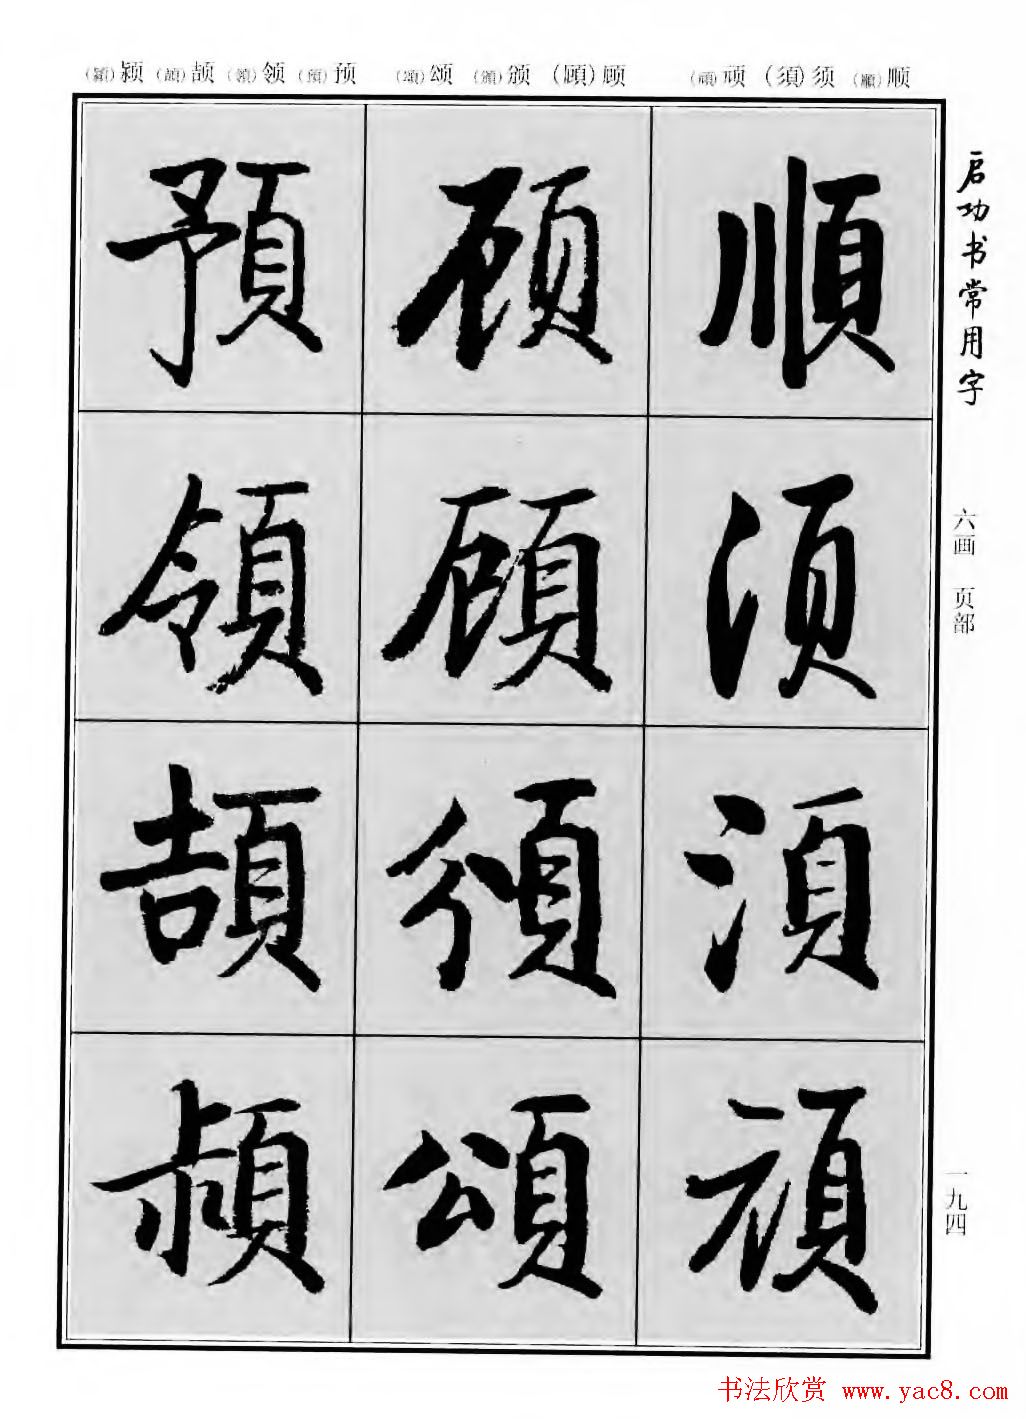 启功书常用字
六画 页部
一九四
顺(順) 须(須) 顽(頑)
顾(顧) 颁(頒) 颂(頌)
预(預) 领(領) 颉(頡) 颖(穎)
順須須頑
顾顧頒頌
預領頡穎
书法欣赏 www.yac8.com